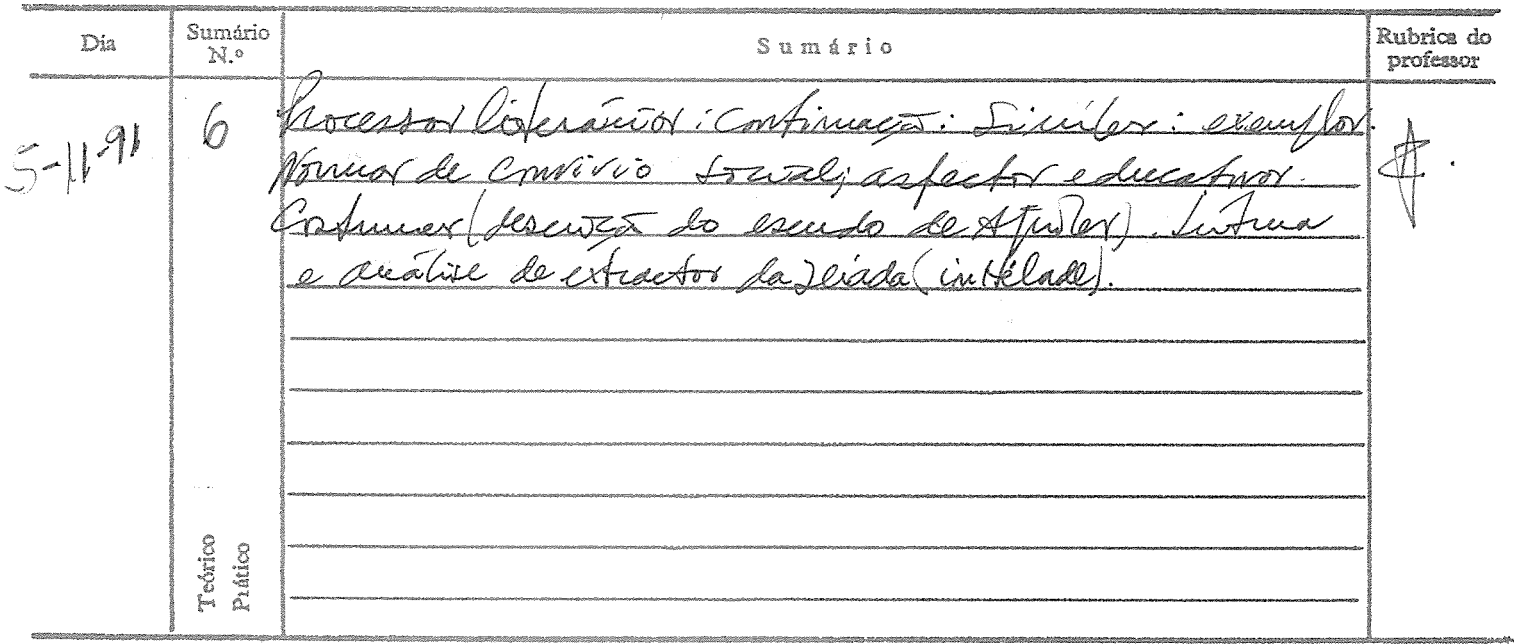 Dia
Sumário
N.º
Sumário
Rubrica do
professor
5-11-91
6
Processos literários: continuação: Símiles: exemplos.
Normas de convívio social; aspectos educativos.
Costumes (descrição do escudo de Aquiles). Leitura
e análise de extractos da Ilíada (in Hélade).
Teórico
Prático